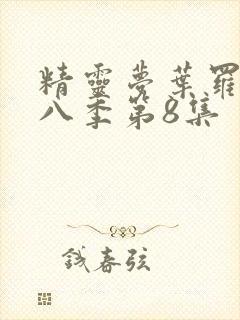 精靈夢葉羅
八季第8集
錢春弦